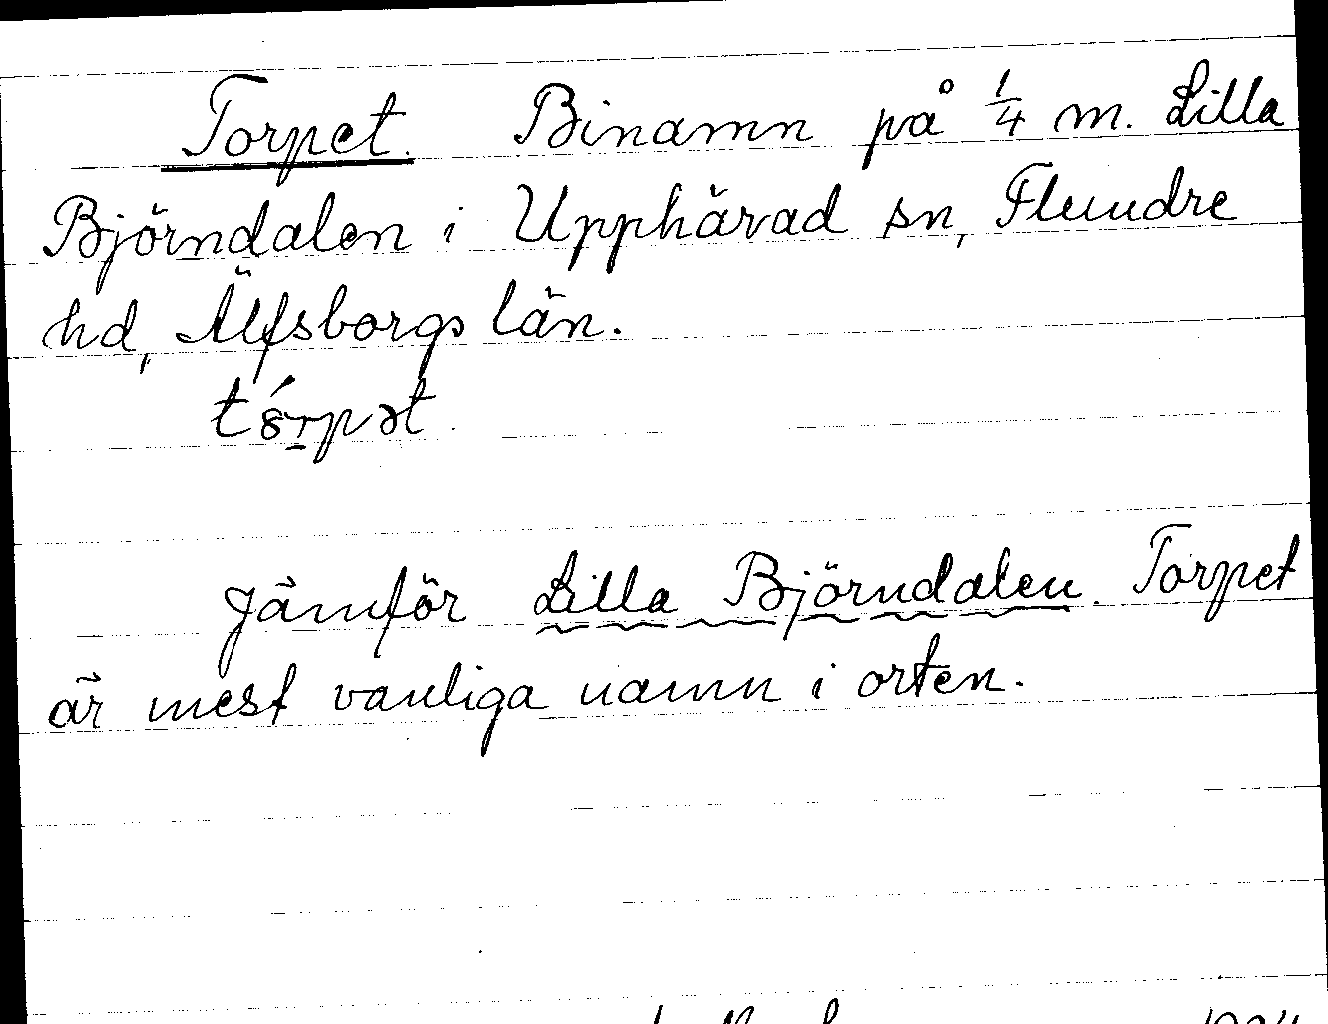 Torpet. Binamn på 1/4 m. Lilla
Björndalen i Upphärad sn, Flundre
hd, Älfsborgs län.
Jämför Lilla Björndalen. Torpet
är mest vanliga namn i orten.